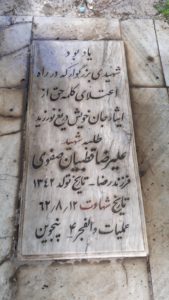 یاد بود
شهیدی بزرگوار که در راه
اعتلای کلمه حق از
ایثار جان خویش دریغ نورزید
طلبه شهید
علیرضا قطبیان صفوی
فرزند رضا - تاریخ تولد ۱۳۴۲
تاریخ شهادت ۶۲,۸,۱۲
عملیات والفجر ۴ پنجوین